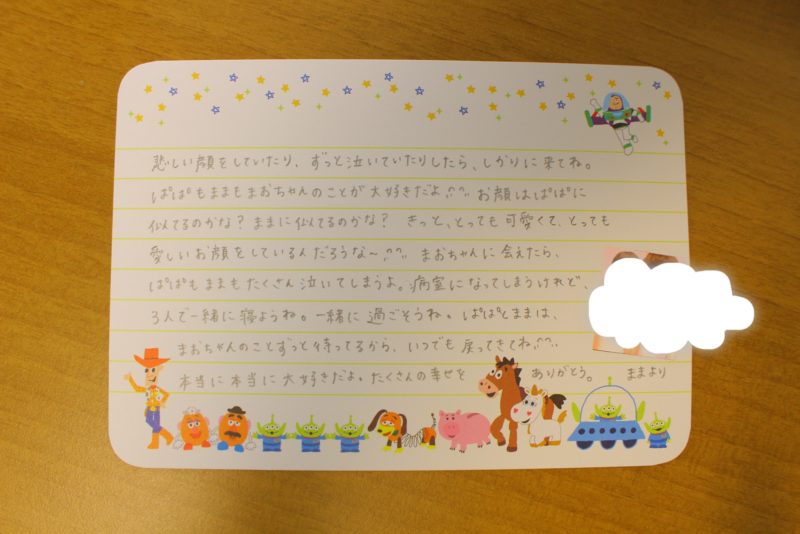 悲しい顔をしていたり、ずっと泣いていたりしたら、しかりに来てね。
ぱぱもままもまおちゃんのことが大好きだよ^^♡ お顔はぱぱに
似てるのかな？ままに似てるのかな？ きっと、とっても可愛くて、とっても
愛しいお顔をしている人だろうな〜^^♡ まおちゃんに会えたら、
ぱぱもままもたくさん泣いてしまうよ。病室になってしまうけれど、
3人で一緒に寝ようね。一緒に過ごそうね。ぱぱとままは、
まおちゃんのことずっと待ってるから、いつでも戻ってきてね^^♡
本当に本当に大好きだよ。たくさんの幸せを ありがとう。 ままより